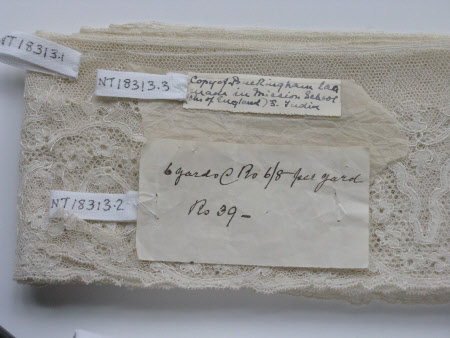 NT18313.1
NT18313.3
Copy of Buckingham Lace
made in Mission School
(Ch of England) S. India
6 yards @ Rs 6/8 per yard
Rs 39 –
NT18313.2